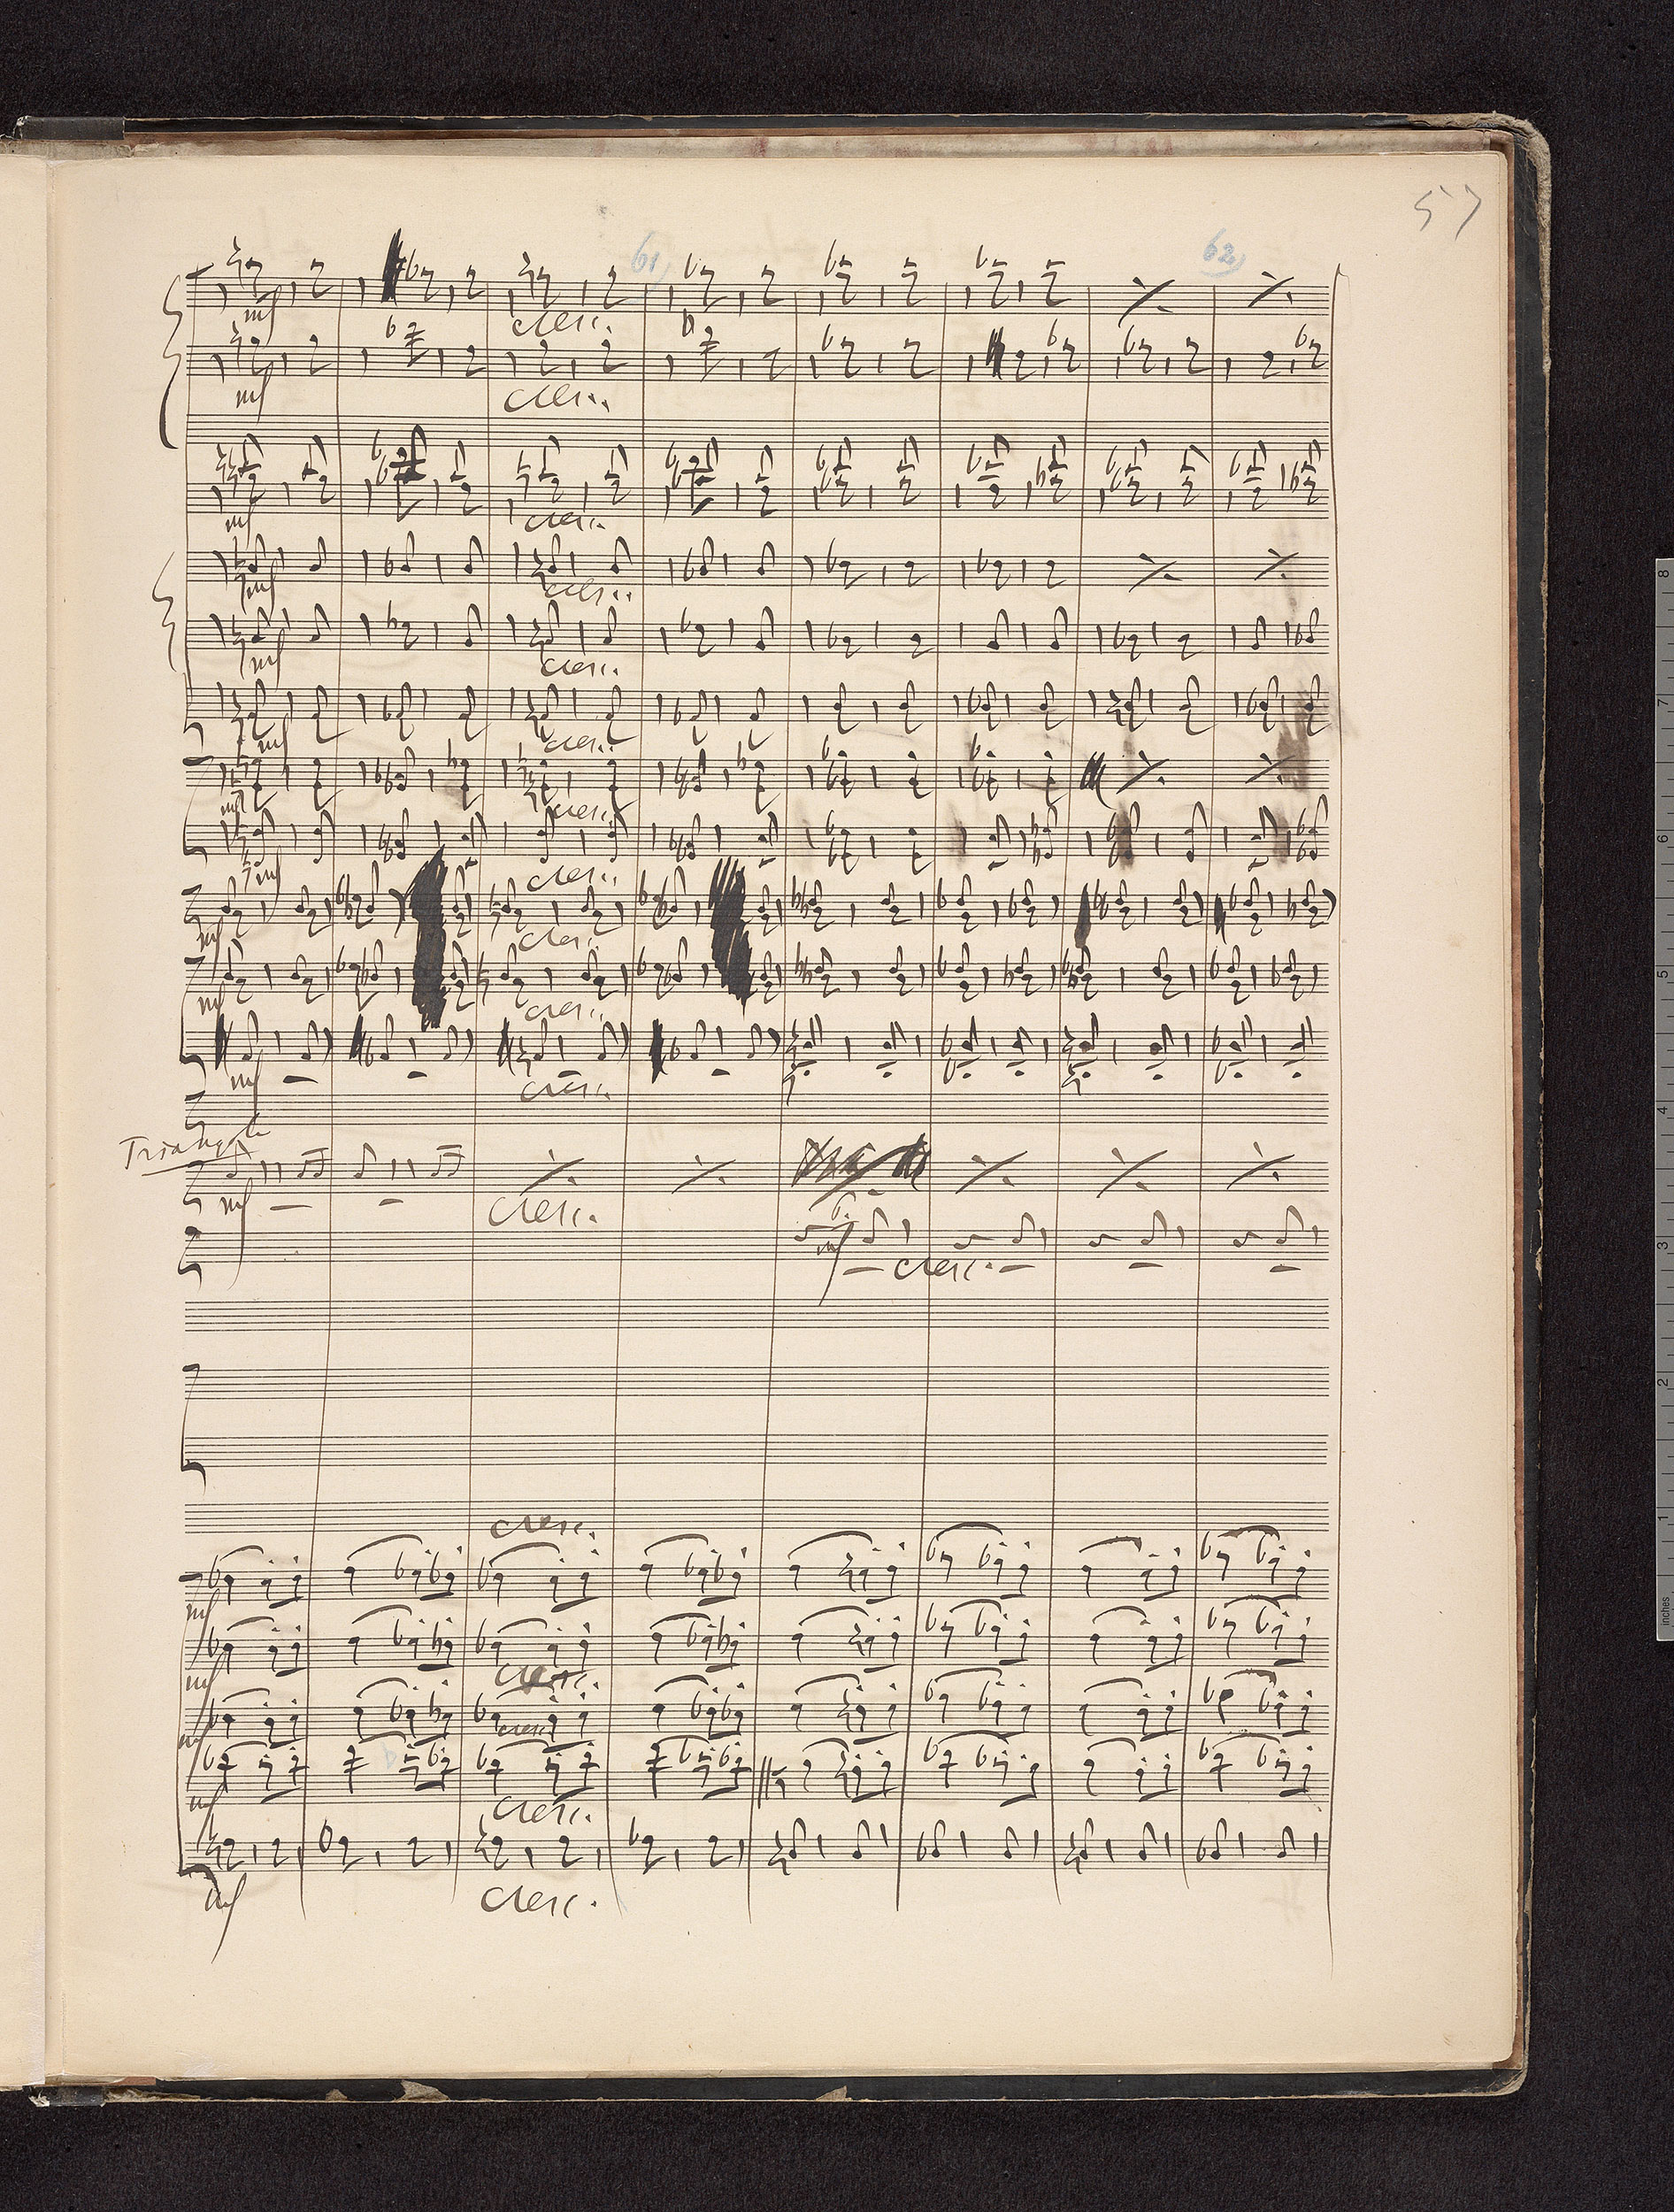 57
61)
62)
mf
cresc.
mf
cresc.
mf
cresc.
mf
cresc.
mf
cresc.
mf
cresc.
mf
cresc.
mf
cresc.
mf
cresc.
mf
cresc.
mf
cresc.
Triangole
mf
cresc.
mf
cresc.
cresc.
mf
mf
cresc.
mf
cresc.
mf
cresc.
mf
cresc.
8
7
6
5
4
3
2
1
inches